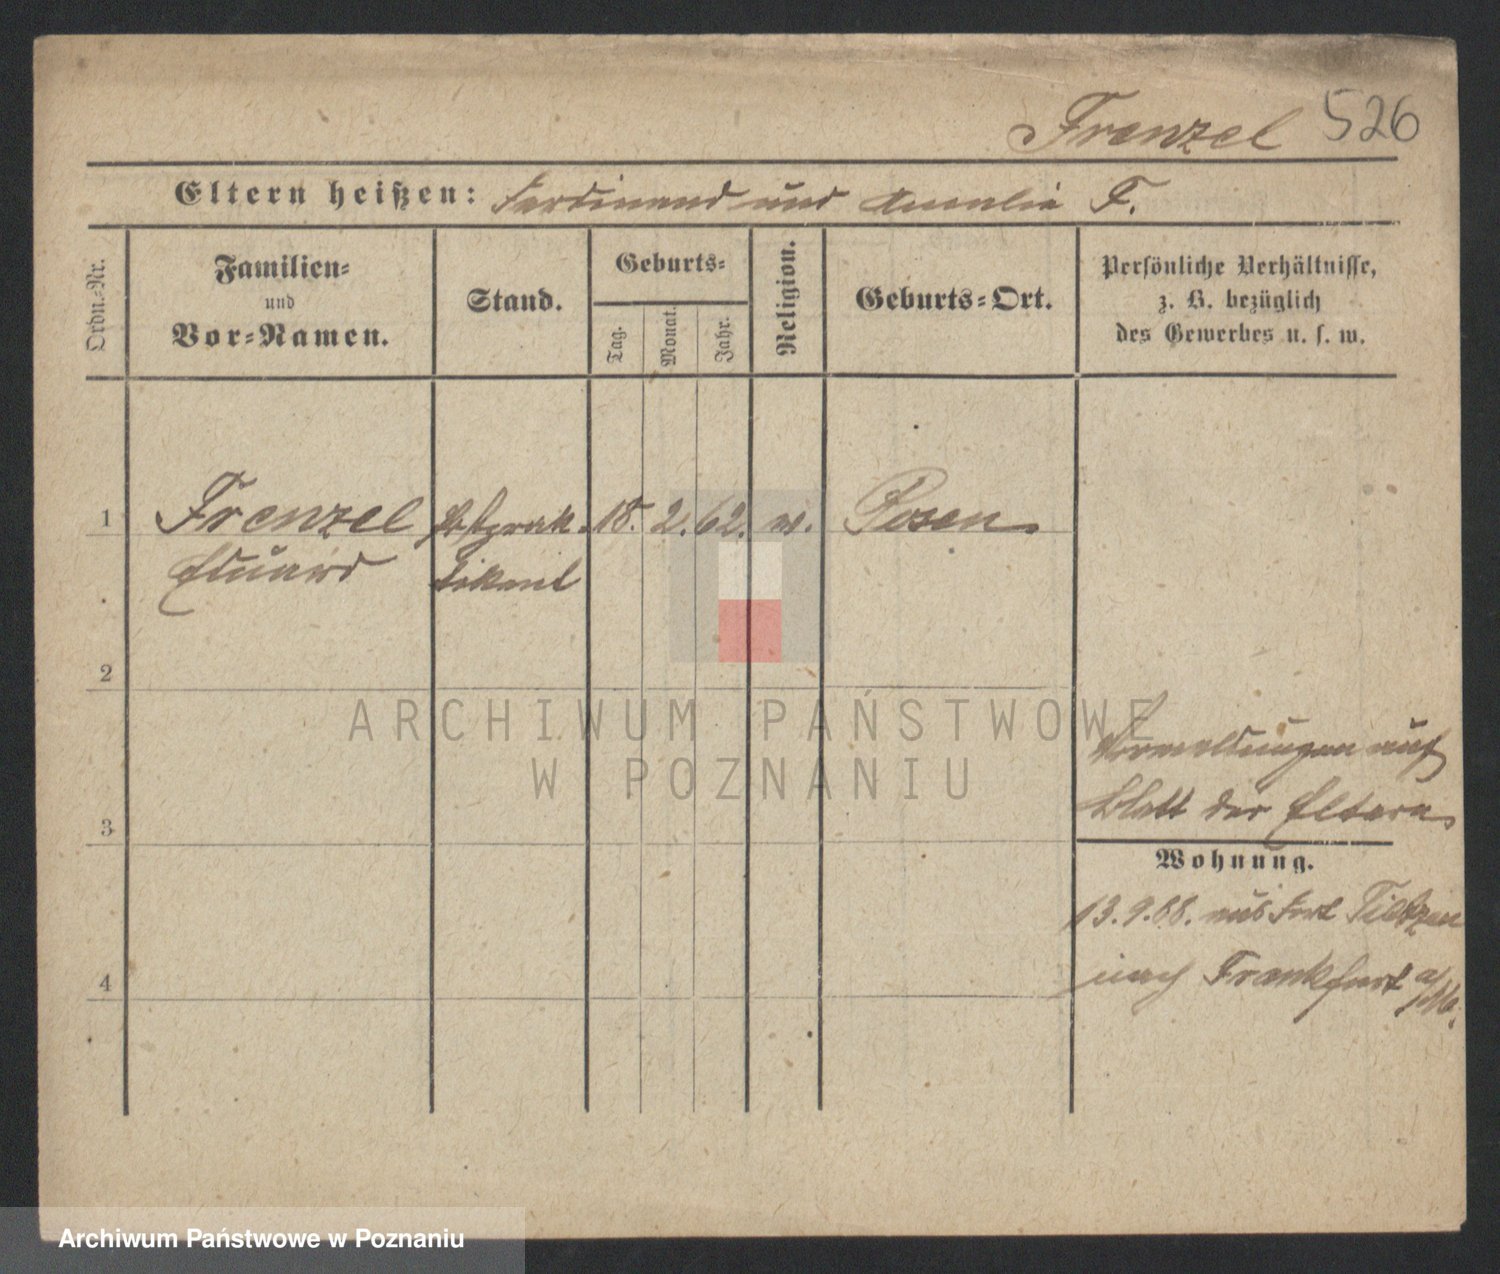 Frenzel 526
Eltern heißen: Ferdinand und Amalie F.
Ordn.-Nr.
Familien-
und
Vor-Namen.
Stand.
Geburts-
Tag.
Monat.
Jahr.
Religion.
Geburts-Ort.
Persönliche Verhältnisse,
z. B. bezüglich
des Gewerbes u. s. w.
1 Frenzel Postprak- 18. 2. 62. Posen
Eduard tikant
2
3
4
Vormeldungen auf
Blatt der Eltern
Wohnung.
13.9.88. aus Fort Tietzen
nach Frankfurt a/M.
ARCHIWUM PAŃSTWOWE
W POZNANIU
Archiwum Państwowe w Poznaniu